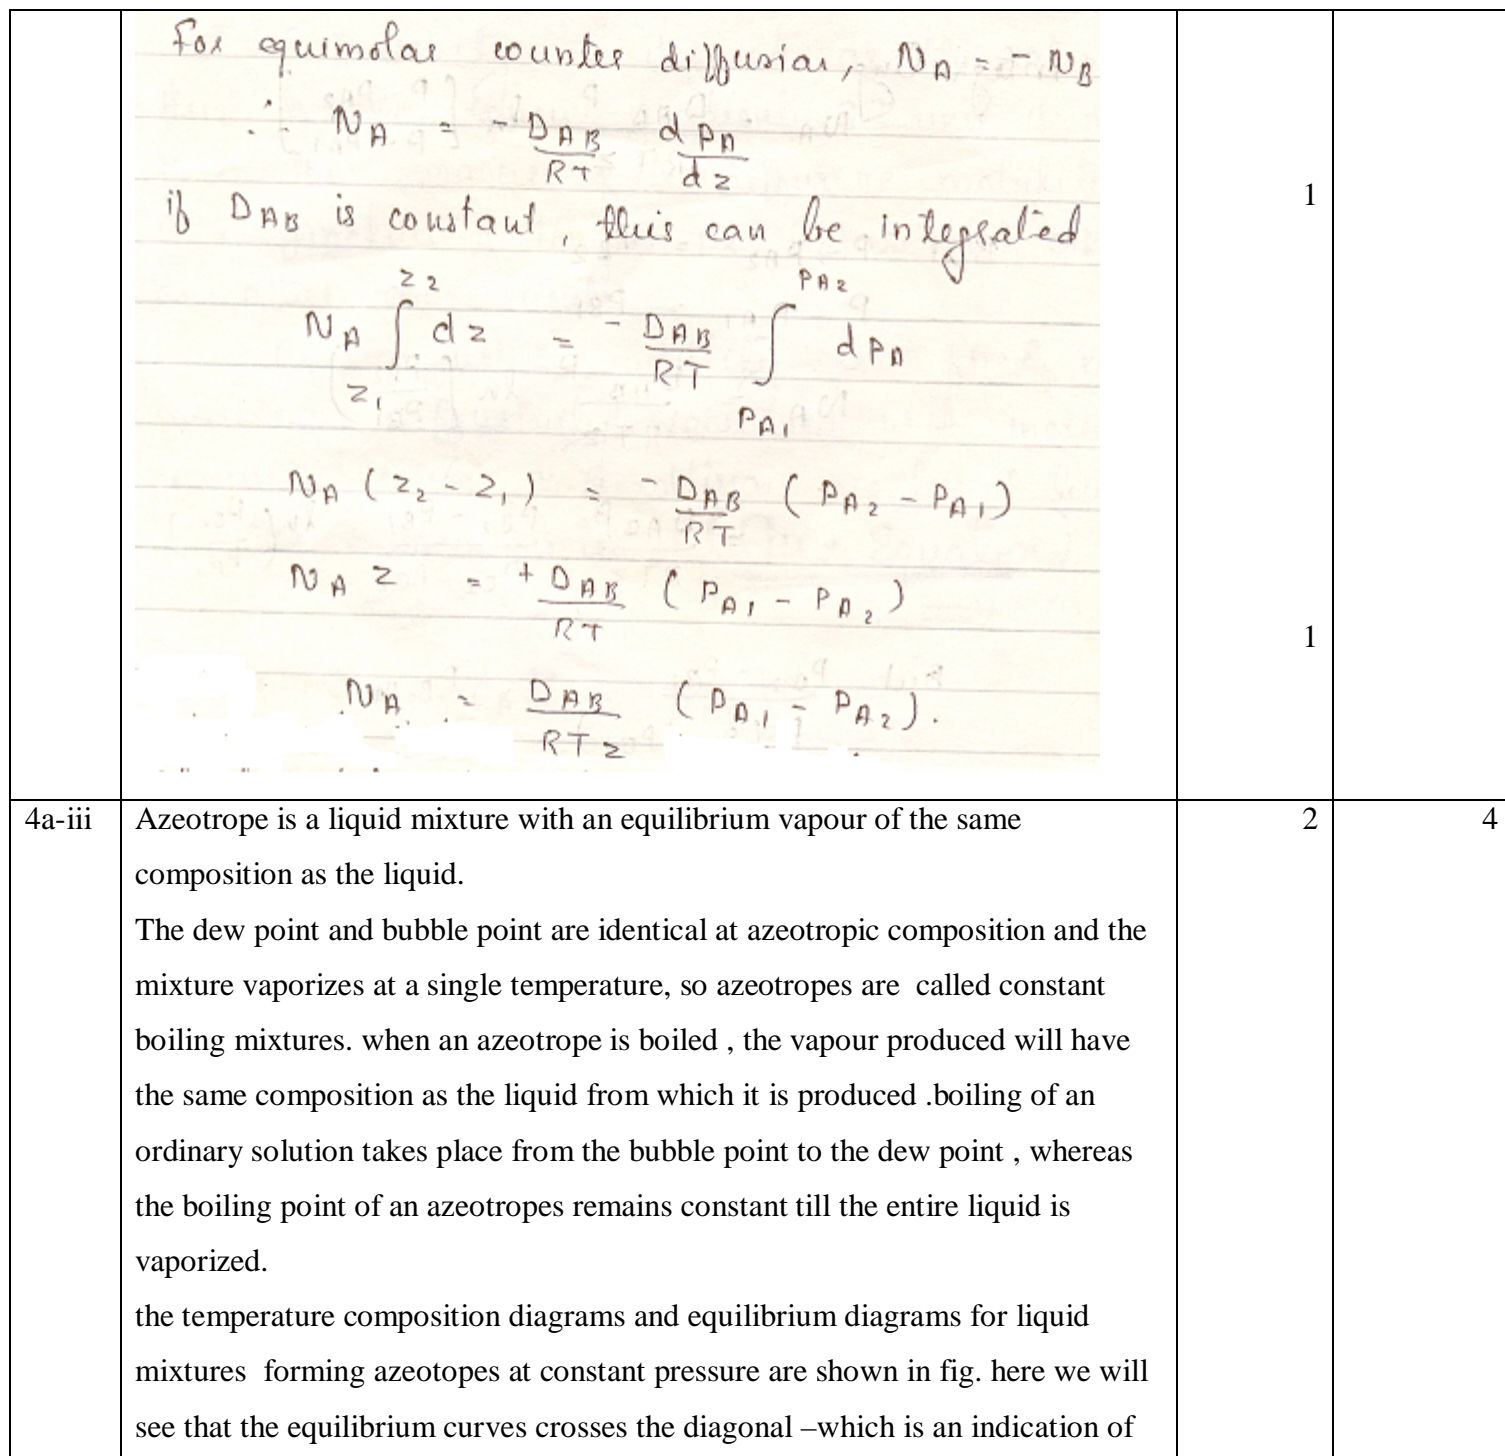 For equimolar counter diffusion, N_A = - N_B
∴ N_A = - D_AB/RT dp_A/dz
if D_AB is constant, this can be integrated
N_A ∫_{z_1}^{z_2} dz = - D_AB/RT ∫_{P_A1}^{P_A2} dp_A
1
N_A (z_2 - z_1) = - D_AB/RT (P_A2 - P_A1)
N_A z = + D_AB/RT (P_A1 - P_A2)
1
N_A = D_AB/RTz (P_A1 - P_A2).
4a-iii Azeotrope is a liquid mixture with an equilibrium vapour of the same 2 4
composition as the liquid.
The dew point and bubble point are identical at azeotropic composition and the
mixture vaporizes at a single temperature, so azeotropes are called constant
boiling mixtures. when an azeotrope is boiled , the vapour produced will have
the same composition as the liquid from which it is produced .boiling of an
ordinary solution takes place from the bubble point to the dew point , whereas
the boiling point of an azeotropes remains constant till the entire liquid is
vaporized.
the temperature composition diagrams and equilibrium diagrams for liquid
mixtures forming azeotopes at constant pressure are shown in fig. here we will
see that the equilibrium curves crosses the diagonal –which is an indication of